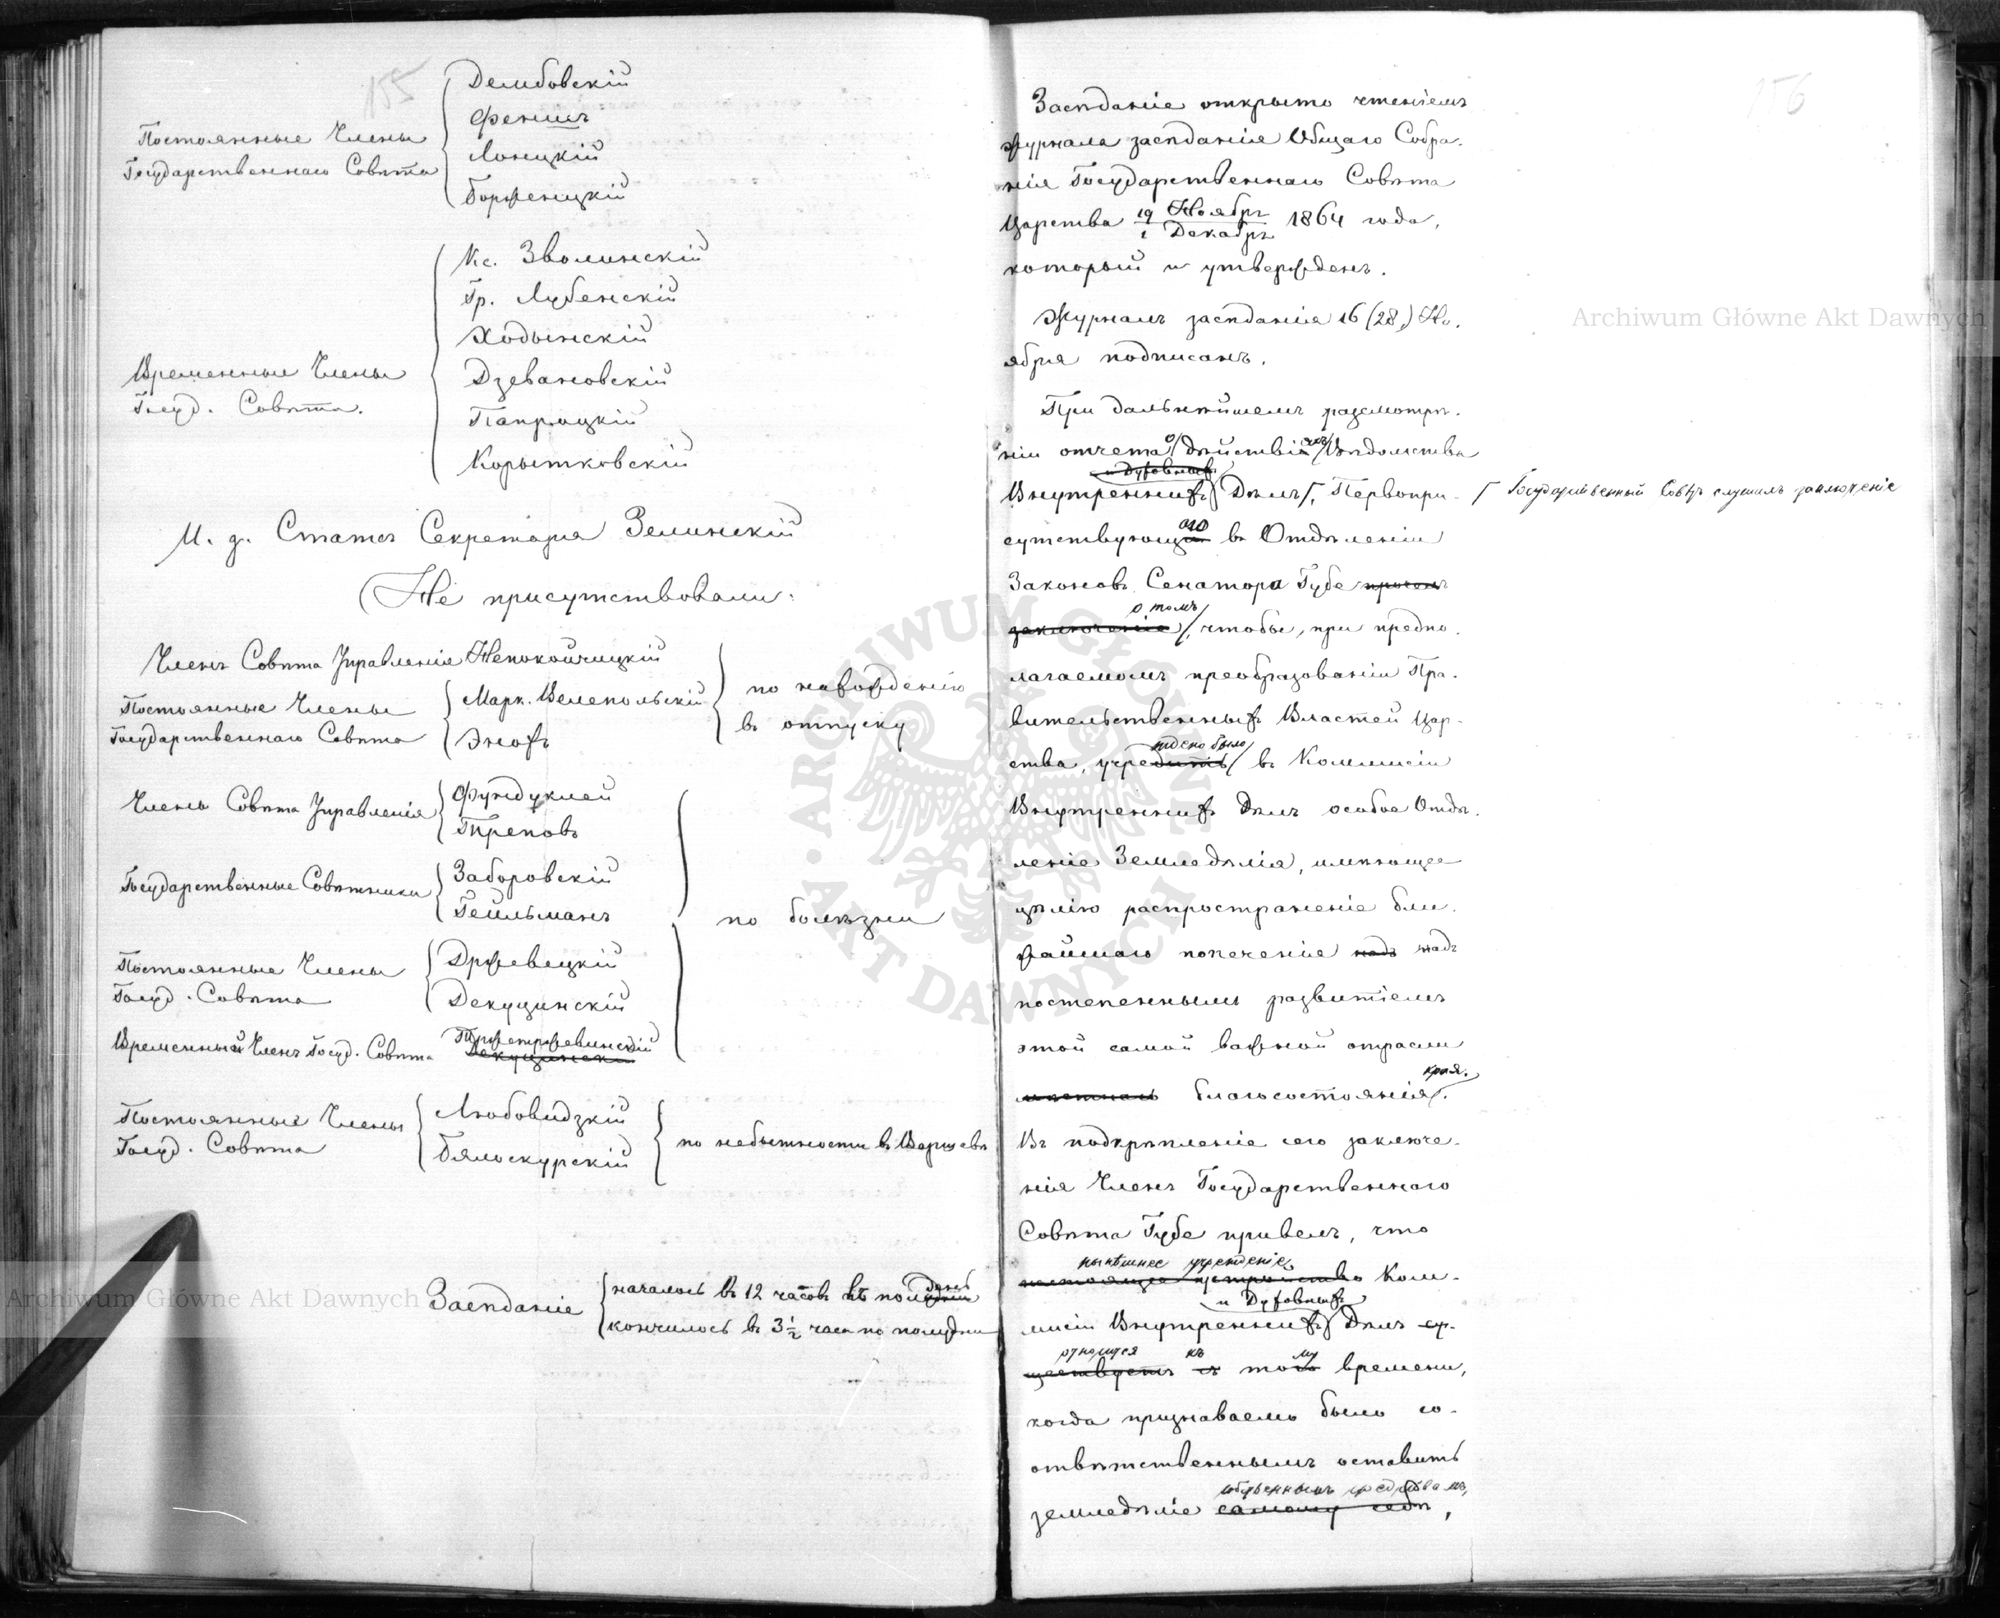 155
Постоянные Члены
Государственнаго Совѣта
Дембовскій
Феншъ
Лонцкій
Борженцкій
Временные Члены
Госуд. Совѣта.
Кс. Зволинскій
Гр. Лубенскій
Ходынскій
Дзевановскій
Папроцкій
Корытковскій
И. д. Статсъ Секретаря Зелинскій
Не присутствовали:
Членъ Совѣта Управленія Непокойчицкій
Постоянные Члены
Государственнаго Совѣта
Марк. Велепольскій
Энохъ
по нахожденію
въ отпуску
Члены Совѣта Управленія
Фундуклей
Треповъ
Государственные Совѣтники
Заборовскій
Гейльманъ
Постоянные Члены
Госуд. Совѣта
Држевецкій
Декуцинскій
Временный Членъ Госуд. Совѣта
Тржетржевинскій
Декуцинскій
по болѣзни
Постоянные Члены
Госуд. Совѣта
Любовидзкій
Бялоскурскій
по небытности въ Варшавѣ
Засѣданіе
началось въ 12 часовъ въ полдень
кончилось въ 3 ½ часа по полудни
156
Засѣданіе открыто чтеніемъ
журнала засѣданія Общаго Собра-
нія Государственнаго Совѣта
Царства 19 Ноября / 1 Декабря 1864 года,
который и утвержденъ.
Журналъ засѣданія 16 (28) Но-
ября подписанъ.
При дальнѣйшемъ разсмотрѣ-
ніи отчета о дѣйствіяхъ Вѣдомства
и Духовныхъ
Внутреннихъ Дѣлъ, Первопри-
Государственный Совѣтъ слушалъ заключеніе
сутствующаго въ Отдѣленіи
Законовъ Сенатора Губе
о томъ
заключеніе, чтобы, при предпо-
лагаемомъ преобразованіи Пра-
вительственныхъ Властей Цар-
ждено было
ства, учредить въ Коммисіи
Внутреннихъ Дѣлъ особое Отдѣ-
леніе Земледѣлія, имѣющее
цѣлію распространеніе бли-
жайшаго попеченія надъ надъ
постепеннымъ развитіемъ
этой самой важной отрасли
края.
благосостоянія.
Въ подкрѣпленіе сего заключе-
нія Членъ Государственнаго
Совѣта Губе привелъ, что
нынѣшнее учрежденіе
настоящее устройство Ком-
и Духовныхъ
мисіи Внутреннихъ Дѣлъ су-
относится къ му
ществуетъ съ того времени,
когда признаваемо было со-
отвѣтственнымъ оставить
собственнымъ средствамъ,
земледѣліе самому себѣ,
Archiwum Główne Akt Dawnych
Archiwum Główne Akt Dawnych
ARCHIWUM GŁÓWNE AKT DAWNYCH